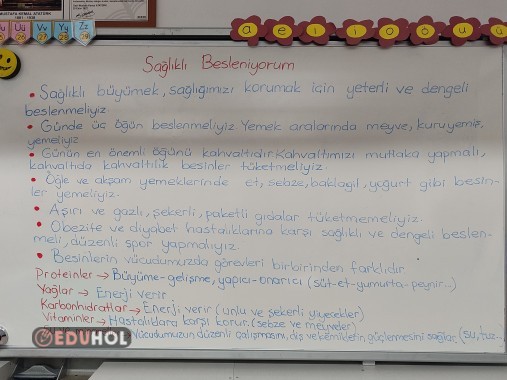 MUSTAFA KEMAL ATATÜRK
1881 - 1938
Üü Vv Yy Zz
a e ı i o ö u ü
Sağlıklı Besleniyorum
• Sağlıklı büyümek, sağlığımızı korumak için yeterli ve dengeli
beslenmeliyiz.
• Günde üç öğün beslenmeliyiz Yemek aralarında meyve, kuruyemiş,
yemeliyiz
• Günün en önemli öğünü kahvaltıdır. Kahvaltımızı mutlaka yapmalı,
kahvaltıda kahvaltılık besinler tüketmeliyiz.
• Öğle ve akşam yemeklerinde et, sebze, baklagil, yoğurt gibi besin-
ler yemeliyiz.
• Aşırı ve gazlı, şekerli, paketli gıdalar tüketmemeliyiz.
• Obezite ve diyabet hastalıklarına karşı sağlıklı ve dengeli beslen-
meli, düzenli spor yapmalıyız.
• Besinlerin vücudumuzda görevleri birbirinden farklıdır.
Proteinler → Büyüme-gelişme, yapıcı-onarıcı (süt-et-yumurta-peynir...)
Yağlar → Enerji verir
Karbonhidratlar → Enerji verir (unlu ve şekerli yiyecekler)
Vitaminler → Hastalıklara karşı korur. (sebze ve meyveler)
Vücudumuzun düzenli çalışmasını, diş ve kemiklerin, güçlenmesini sağlar. (su, tuz...)
EDUHOL